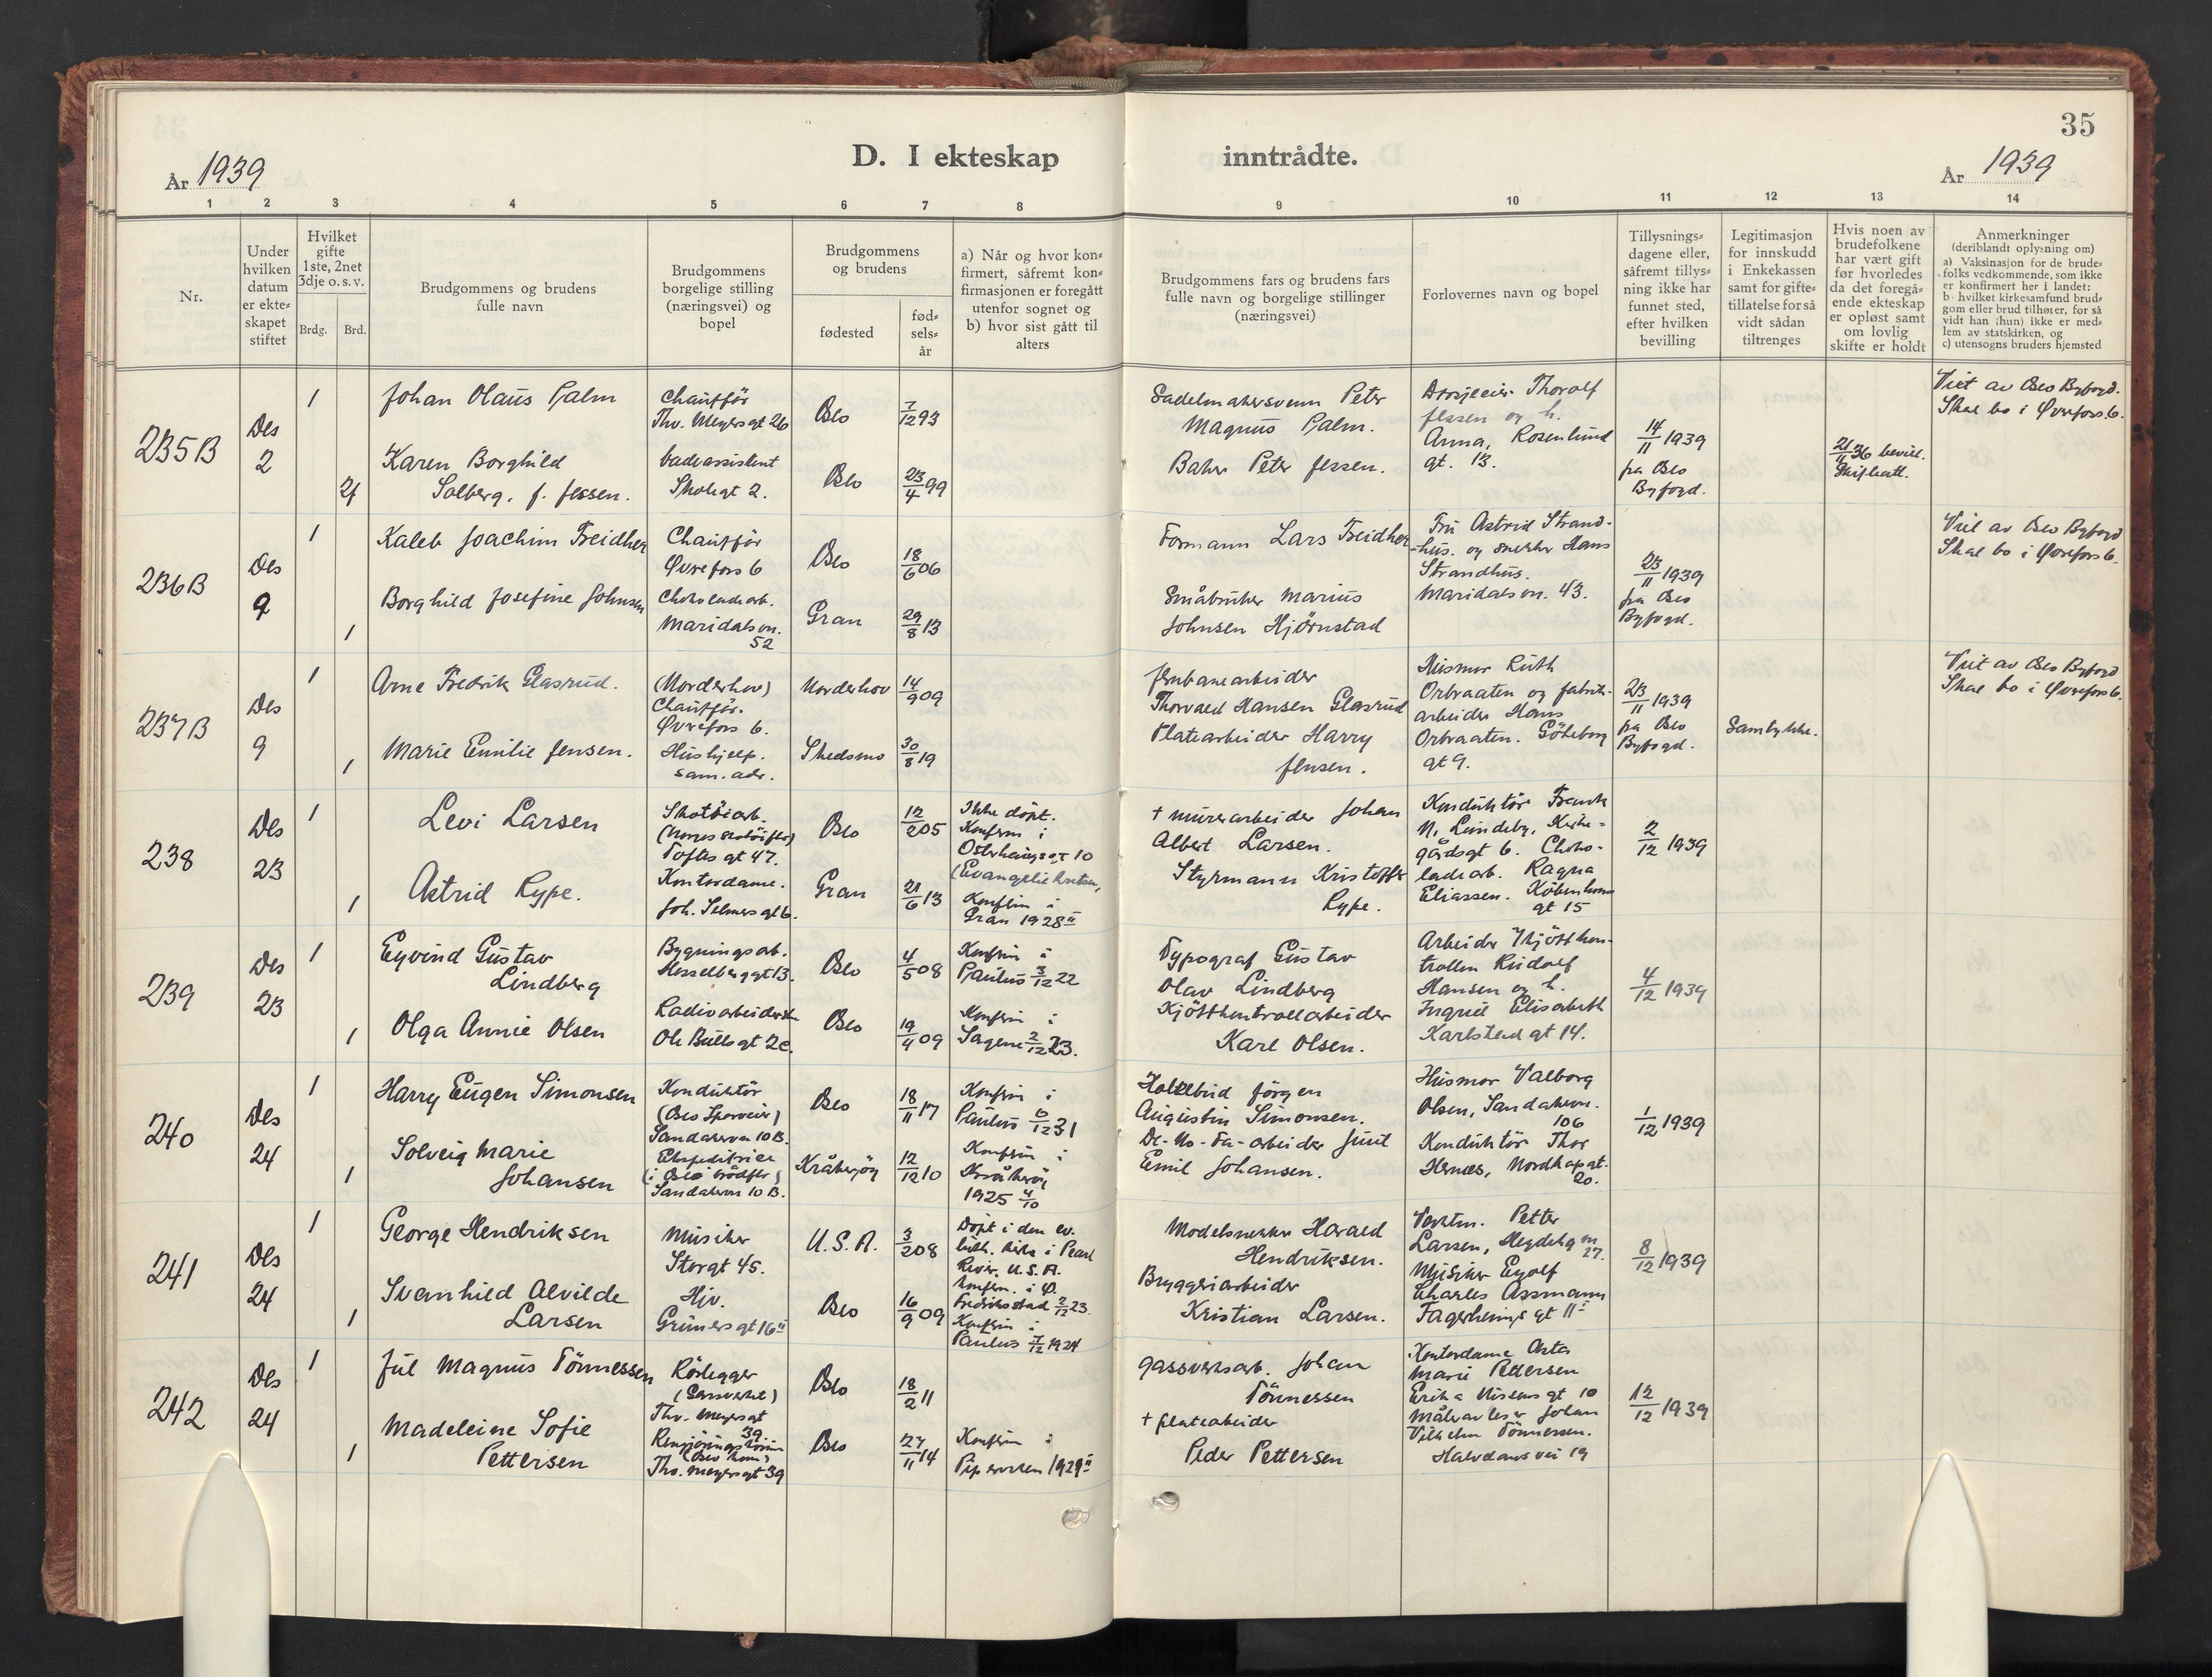 35
D. I ekteskap inntrådte.
År 1939
År 1939
1 2 3 4 5 6 7 8 9 10 11 12 13 14
Nr.
Under
hvilken
datum
er ekte-
skapet
stiftet
Hvilket
gifte
1ste, 2net
3dje o. s. v.
Brdg. Brd.
Brudgommens og brudens
fulle navn
Brudgommens
borgelige stilling
(næringsvei) og
bopel
Brudgommens
og brudens
fødested
fød-
sels-
år
a) Når og hvor kon-
firmert, såfremt kon-
firmasjonen er foregått
utenfor sognet og
b) hvor sist gått til
alters
Brudgommens fars og brudens fars
fulle navn og borgelige stillinger
(næringsvei)
Forlovernes navn og bopel
Tillysnings-
dagene eller,
såfremt tillys-
ning ikke har
funnet sted,
efter hvilken
bevilling
Legitimasjon
for innskudd
i Enkekassen
samt for gifte-
tillatelse for så
vidt sådan
tiltrenges
Hvis noen av
brudefolkene
har vært gift
før hvorledes
da det foregå-
ende ekteskap
er opløst samt
om lovlig
skifte er holdt
Anmerkninger
(deriblandt oplysning om)
a) Vaksinasjon for de brude-
folks vedkommende, som ikke
er konfirmert her i landet:
b- hvilket kirkesamfund brud-
gom eller brud tilhører, for så
vidt han (hun) ikke er med-
lem av statskirken, og
c) utensogns bruders hjemsted
235B
Des
2
1
Johan Olaus Palm
Chaufför
Thv. Meyersgt 26
Oslo
7/12 93
Sadelmakersvenn Peter
Magnus Palm.
Drosjeeier Thoralf
Jessen og h.
Anna, Rosenlund
gt. 13.
14/11 1939
fra Oslo
Byfogd.
21/11 36 bevill.
Skifteatt.
Viet av Oslo Byfogd.
Skal bo i Øvrefoss 6.
2
Karen Borghild
Solberg, f. Jessen.
badeassistent
Skolegt 2.
Oslo
23/4 99
Baker Peter Jessen.
236B
Des
9
1
Kaleb Joachim Treidher
Chauffør
Øvrefoss 6
Oslo
18/6 06
Formann Lars Treidher
Fru Astrid Strand-
hus. og snekker Hans
Strandhus.
Maridalsvn. 43.
23/11 1939
fra Oslo
Byfogd.
Viet av Oslo Byfogd
Skal bo i Øvrefoss 6.
1
Borghild Josefine Johnsen
Chokoladearb.
Maridalsvn.
52
Gran
29/8 13
Småbruker Marius
Johnsen Hjörnstad
237B
Des
9
1
Arne Fredrik Glasrud.
(Norderhov)
Chauffør.
Øvrefoss 6.
Norderhov
14/9 09
Jernbanearbeider
Thorvald Hansen Glasrud
Husmor Ruth
Orbraaten og fabrik-
arbeider Hans
Orbraaten. Göteborg
gt 9.
23/11 1939
fra Oslo
Byfogd.
Samtykke.
Viet av Oslo Byfogd
Skal bo i Øvrefoss 6.
1
Marie Emilie Jensen.
Hushjelp.
sam. adr.
Skedsmo
30/8 19
Platearbeider Harry
Jensen.
238
Des
23
1
Levi Larsen
Skotöiarb.
(Norges skotöifbr)
Toftes gt 47.
Oslo
12/2 05
Ikke döpt.
Konfirm i
Osterhausgt 10
+ murerarbeider Johan
Albert Larsen.
Konduktör Frank
N. Lundeby, Kirke-
gårdsgt 6. Choko-
ladearb. Ragna
Eliassen. Köbenhavns
gt 15
2/12 1939
1
Astrid Rype.
Kontordame.
Joh. Selmersgt 6.
Gran
21/6 13
Konfirm i
Gran 1928
Styrmann Kristoffer
Rype.
239
Des
23
1
Eyvind Gustav
Lindberg
Bygningsarb.
Hesselberggt 13.
Oslo
4/5 08
Konfirm i
Paulus 3/12 22
Typograf Gustav
Olav Lindberg
Arbeider Kjöttkon-
trollen Rudolf
Hansen og h.
Ingrid Elisabeth
Karlstad gt 14.
4/12 1939
1
Olga Annie Olsen
Radioarbeiderske
Ole Bulls gt 2c.
Oslo
19/4 09
Konfirm i
Sagene 2/12 23.
Kjöttkontrollarbeider
Karl Olsen.
240
Des
24
1
Harry Eugen Simonsen
Konduktör
(Oslo Sporveier)
Sandakervn 10 B.
Oslo
18/11 17
Konfirm i
Paulus 6/12 31
Hotelbud Jörgen
Augustin Simonsen.
Husmor Valborg
Olsen, Sandakervn.
106
Konduktör Thor
Hernes, Nordkapgt.
20.
1/12 1939
1
Solveig Marie
Johansen
Ekspeditrice
(i Oslo brödfbr)
Sandakervn 10 B.
Kråkeröy
12/12 10
Konfirm i
Kråkeröy
1925 4/10
De-No-Fa-arbeider Juul
Emil Johansen.
241
Des
24
1
George Hendriksen
Musiker
Storgt 45.
U.S.A.
3/2 08
Döpt i den ev.
luth. kirke i Pearl
River, U.S.A.
konfirm. i Ø.
Fredriksstad 2/12 23.
Modelsnekker Harald
Hendriksen.
Vaktm. Petter
Larsen, Heydahg vn
27.
Musiker Eyolf
Charles Assmann
Fagerheimsgt 11
8/12 1939
1
Svanhild Alvilde
Larsen
Hjv.
Grüners gt 16
Oslo
16/9 09
Konfirm i
Paulus 7/12 1924
Bryggeriarbeider
Kristian Larsen.
242
Des
24
1
Jul Magnus Tönnessen
Rörlegger
(Gassverket)
Thv. Meyersgt
39.
Oslo
18/2 11
Gassverksarb. Johan
Tönnessen
Kontordame Asta
Marie Pettersen
Erika Nissensgt 10
Måleravleser Johan
Vilhelm Tönnessen.
Halvdansvei 19
12/12 1939
1
Madeleine Sofie
Pettersen
Rengjöringskvinne
(Oslo kom)
Thv. Meyersgt 39
Oslo
27/11 14
Konfirm i
Pipervicken 1929
+ platearbeider
Peder Pettersen